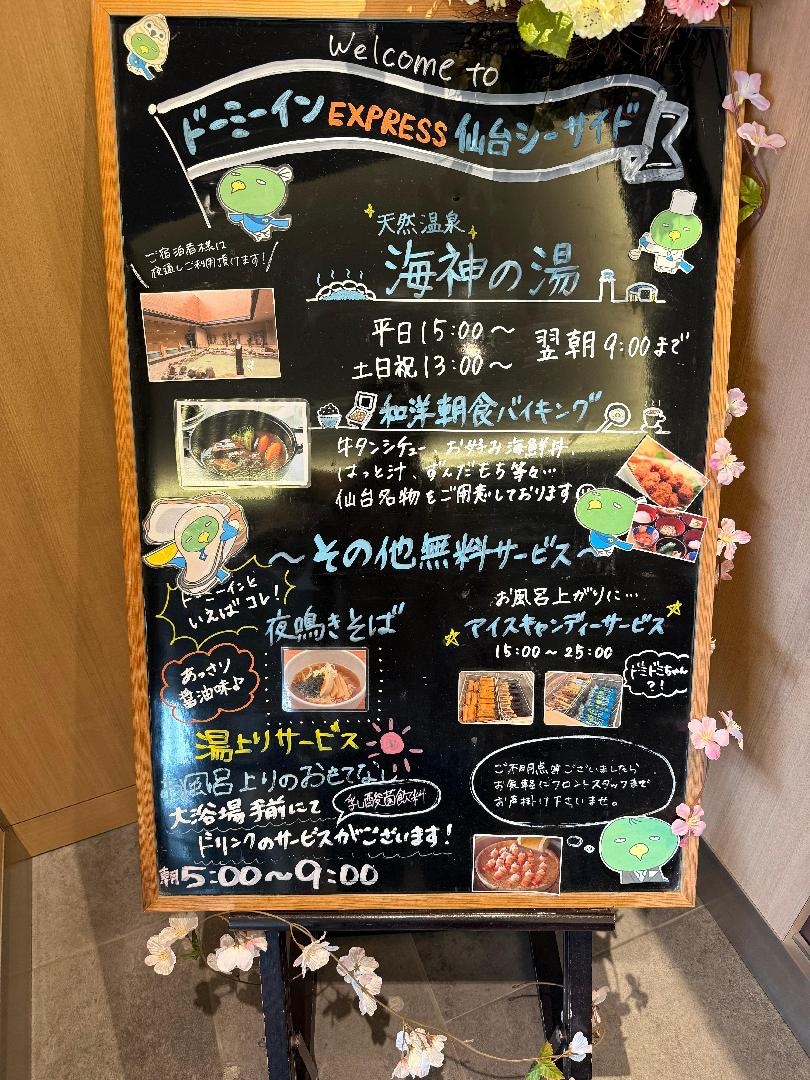 Welcome to
ドーミーイン EXPRESS 仙台シーサイド
天然温泉
海神の湯
ご宿泊者様は
夜通しご利用頂けます!
平日15:00~
土日祝13:00~
翌朝9:00まで
和洋朝食バイキング
牛タンシチュー、お好み海鮮丼、
はっと汁、ずんだもち等々…
仙台名物をご用意しております
~その他無料サービス~
ドーミーインと
いえばコレ!
夜鳴きそば
あっさり
醤油味♪
お風呂上がりに…
アイスキャンディーサービス
15:00~25:00
ドミドミちゃん
?!
湯上りサービス
お風呂上りのおもてなし
大浴場手前にて
乳酸菌飲料
ドリンクのサービスがございます!
朝5:00~9:00
ご不明点等ございましたら
お気軽にフロントスタッフまで
お声掛け下さいませ。